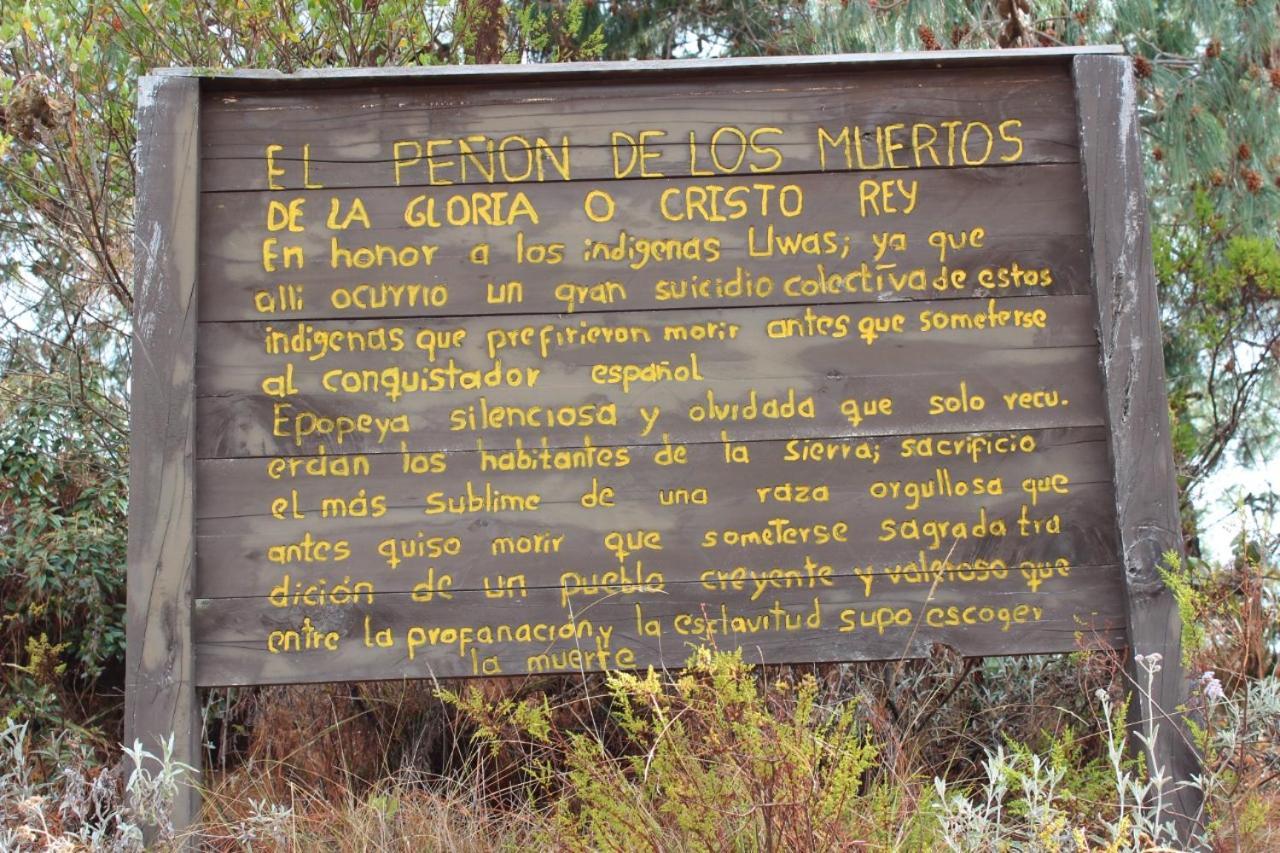 EL PEÑON DE LOS MUERTOS
DE LA GLORIA O CRISTO REY
En honor a los indigenas Uwas; ya que
alli ocurrio un gran suicidio colectiva de estos
indigenas que prefirieron morir antes que someterse
al conquistador español
Epopeya silenciosa y olvidada que solo recu.
erdan los habitantes de la sierra; sacrificio
el más sublime de una raza orgullosa que
antes quiso morir que someterse sagrada tra
dición de un pueblo creyente y valeroso que
entre la profanación y la esclavitud supo escoger
la muerte